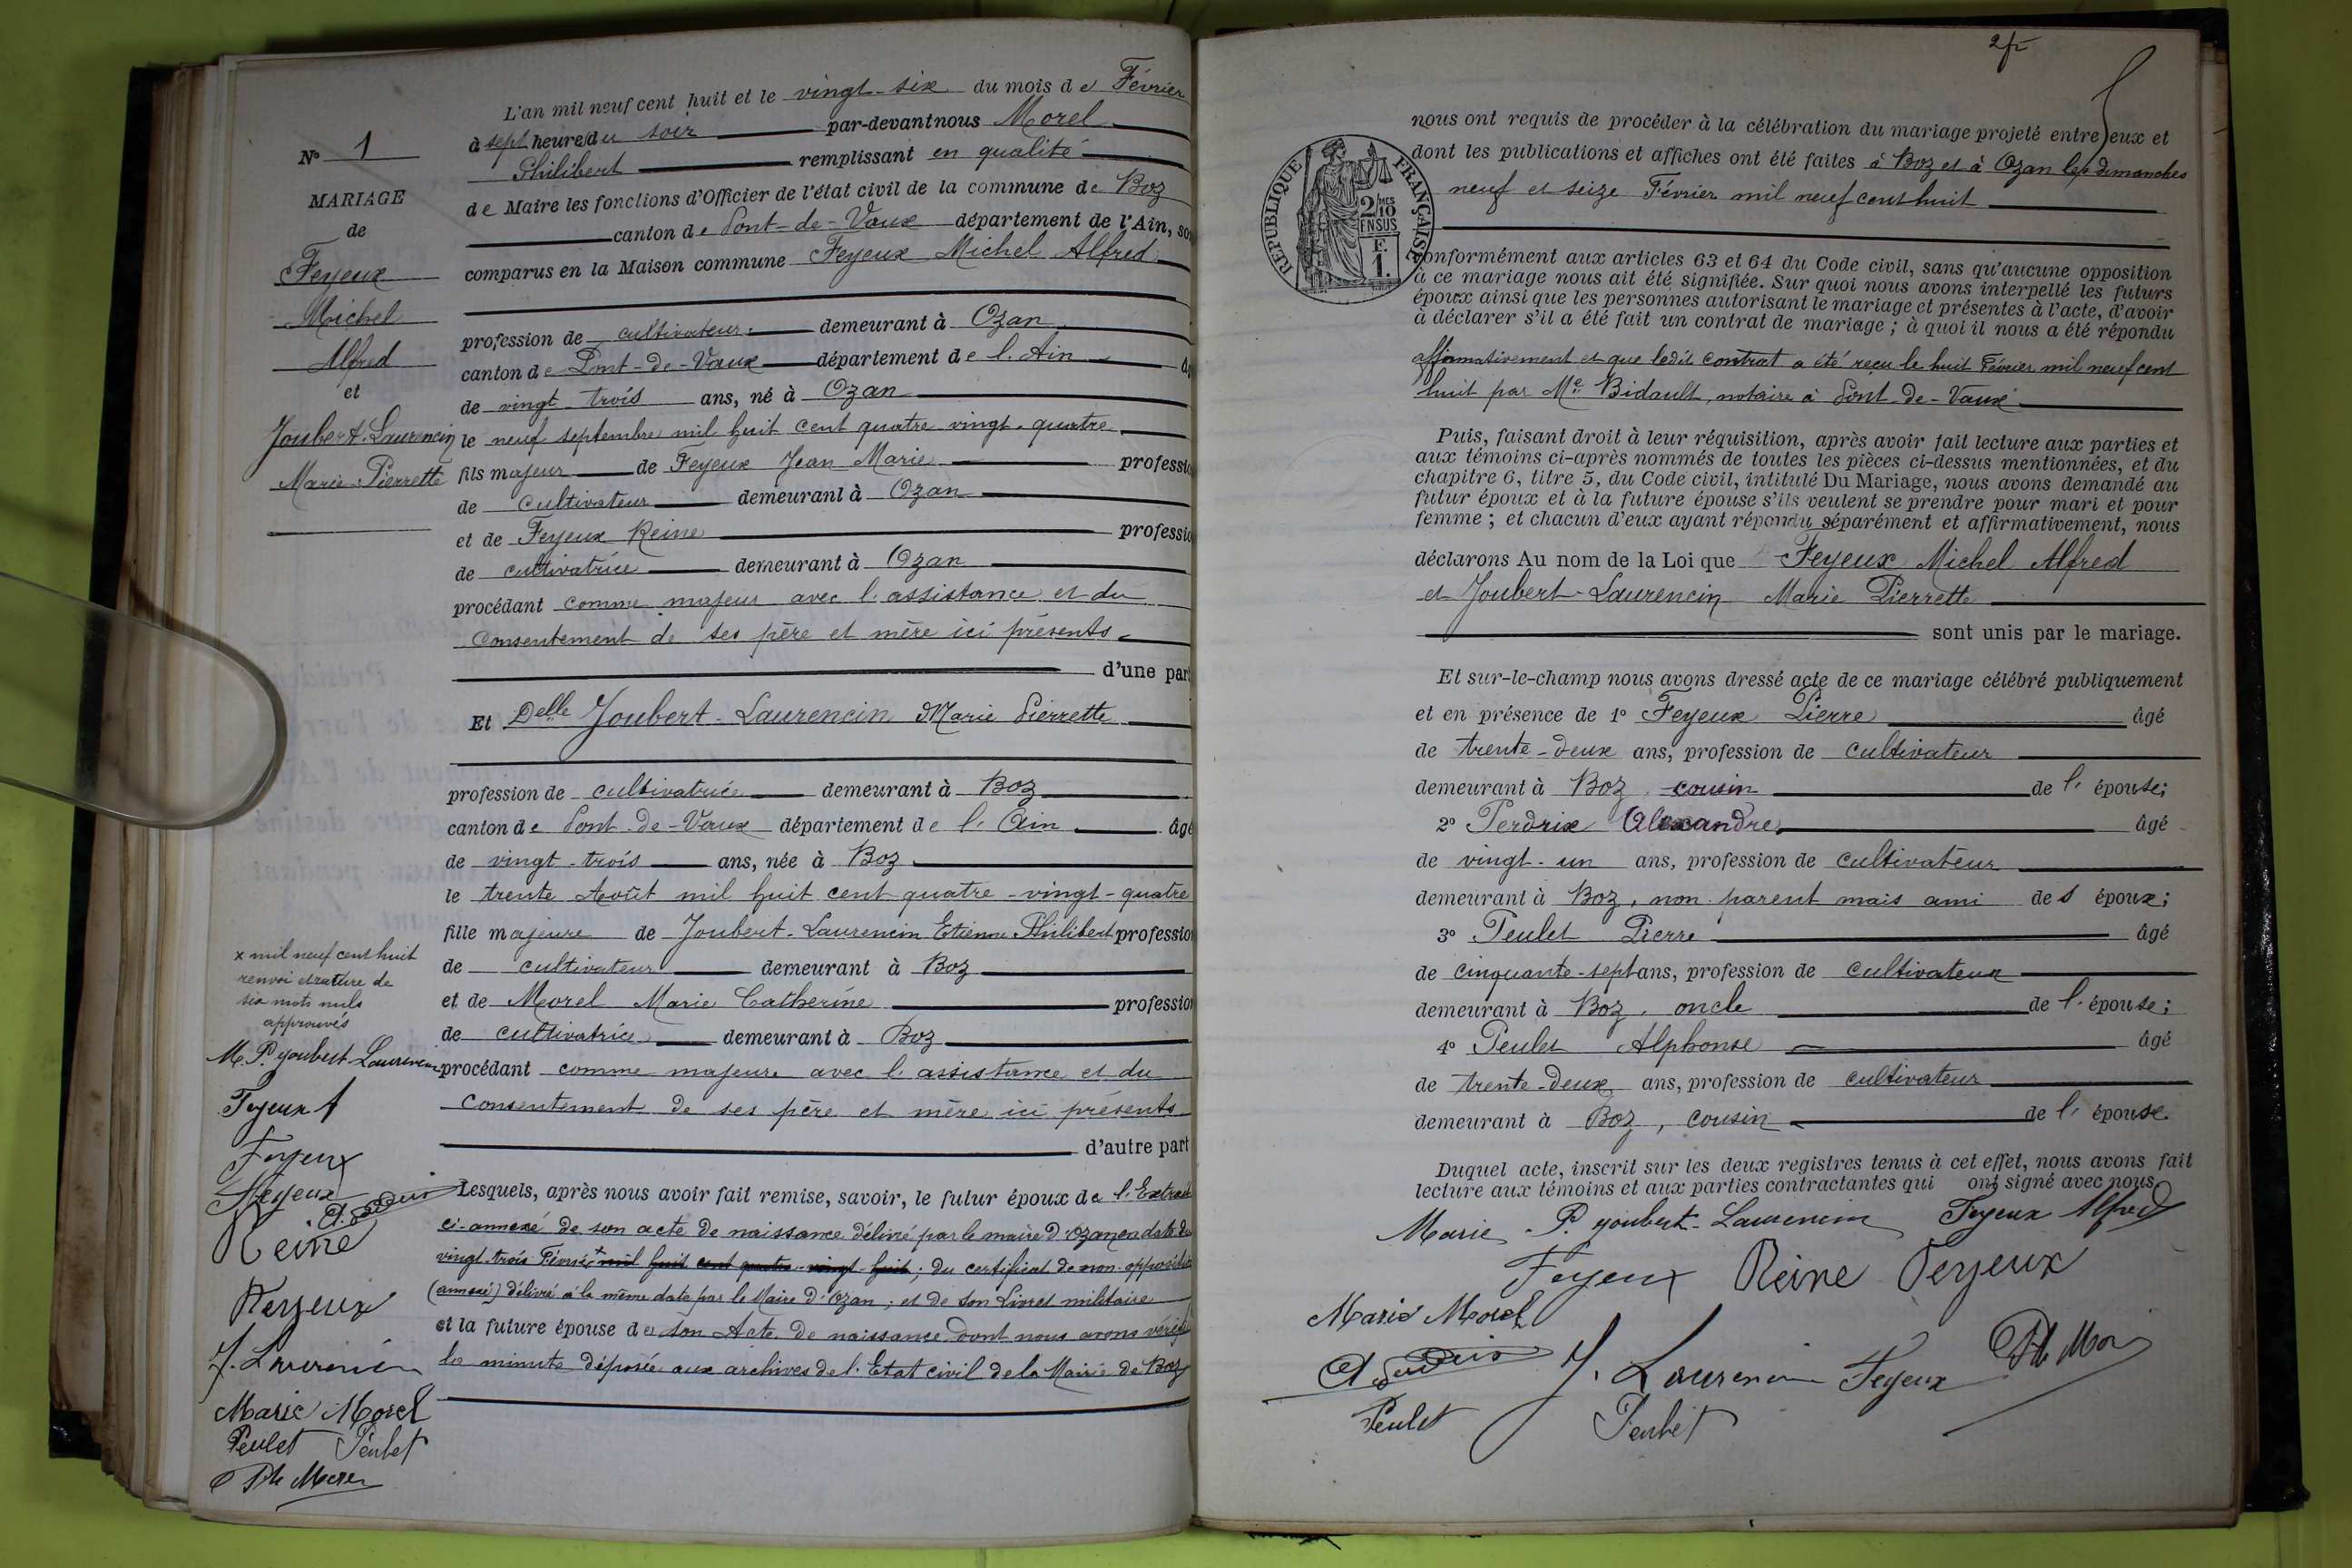 N° 1
MARIAGE
de
Feyeux
Michel
Alfred
et
Joubert-Laurencin
Marie-Pierrette
L'an mil neuf cent huit et le vingt-six du mois de Février
à sept heures du soir par-devant nous Morel
Philibert remplissant en qualité
de Maire les fonctions d'Officier de l'état civil de la commune de Boz
canton de Pont-de-Vaux département de l'Ain, so
comparus en la Maison commune Feyeux Michel Alfred
profession de cultivateur demeurant à Ozan
canton de Pont-de-Vaux département de l'Ain
de vingt-trois ans, né à Ozan
le neuf septembre mil huit cent quatre vingt-quatre
fils majeur de Feyeux Jean Marie professio
de cultivateur demeurant à Ozan
et de Feyeux Reine professio
de cultivatrice demeurant à Ozan
procédant comme majeur avec l'assistance et du
consentement de ses père et mère ici présents
d'une part
Et Delle Joubert-Laurencin Marie Pierrette
profession de cultivatrice demeurant à Boz
canton de Pont-de-Vaux département de l'Ain âgé
de vingt-trois ans, née à Boz
le trente Août mil huit cent quatre-vingt-quatre
fille majeure de Joubert-Laurencin Etienne Philibert profession
de cultivateur demeurant à Boz
et de Morel Marie Catherine profession
de cultivatrice demeurant à Boz
procédant comme majeure avec l'assistance et du
consentement de ses père et mère ici présents
d'autre part
Lesquels, après nous avoir fait remise, savoir, le futur époux de l'Extrait
ci-annexé de son acte de naissance délivré par le maire d'Ozan en date du
vingt-trois Février x mil huit cent quatre-vingt-huit; du certificat de non-opposition
(annexé) délivré à la même date par le Maire d'Ozan; et de son Livret militaire
et la future épouse de son Acte de naissance dont nous avons vérifié
la minute déposée aux archives de l'Etat civil de la Mairie de Boz
x mil neuf cent huit
renvoi et rature de
six mots nuls
approuvés
M. P. Joubert Laurencin
Feyeux A
Feyeux
Feyeux
Reine
Feyeux
J. Laurencin
Marie Morel
Peulet Peulet
Ph Morel
nous ont requis de procéder à la célébration du mariage projeté entre eux et
dont les publications et affiches ont été faites à Boz et à Ozan les dimanches
neuf et seize Février mil neuf cent huit
RÉPUBLIQUE FRANÇAISE
2/10
EN SUS
F.
1.
conformément aux articles 63 et 64 du Code civil, sans qu'aucune opposition
à ce mariage nous ait été signifiée. Sur quoi nous avons interpellé les futurs
époux ainsi que les personnes autorisant le mariage et présentes à l'acte, d'avoir
à déclarer s'il a été fait un contrat de mariage; à quoi il nous a été répondu
affirmativement et que ledit contrat a été reçu le huit Février mil neuf cent
huit par Me Bidault, notaire à Pont-de-Vaux
Puis, faisant droit à leur réquisition, après avoir fait lecture aux parties et
aux témoins ci-après nommés de toutes les pièces ci-dessus mentionnées, et du
chapitre 6, titre 5, du Code civil, intitulé Du Mariage, nous avons demandé au
futur époux et à la future épouse s'ils veulent se prendre pour mari et pour
femme; et chacun d'eux ayant répondu séparément et affirmativement, nous
déclarons Au nom de la Loi que Feyeux Michel Alfred
et Joubert-Laurencin Marie Pierrette
sont unis par le mariage.
Et sur-le-champ nous avons dressé acte de ce mariage célébré publiquement
et en présence de 1° Feyeux Pierre âgé
de trente-deux ans, profession de cultivateur
demeurant à Boz, cousin de l'épouse;
2° Perdrix Alexandre âgé
de vingt-un ans, profession de cultivateur
demeurant à Boz, non parent mais ami des époux;
3° Peulet Pierre âgé
de cinquante-sept ans, profession de cultivateur
demeurant à Boz, oncle de l'épouse;
4° Peulet Alphonse âgé
de trente-deux ans, profession de cultivateur
demeurant à Boz, cousin de l'épouse.
Duquel acte, inscrit sur les deux registres tenus à cet effet, nous avons fait
lecture aux témoins et aux parties contractantes qui ont signé avec nous
Marie P. Joubert-Laurencin Feyeux Alfred
Feyeux Reine Feyeux
Marie Morel
A Perdrix J. Laurencin Feyeux Ph Mor
Peulet Peulet